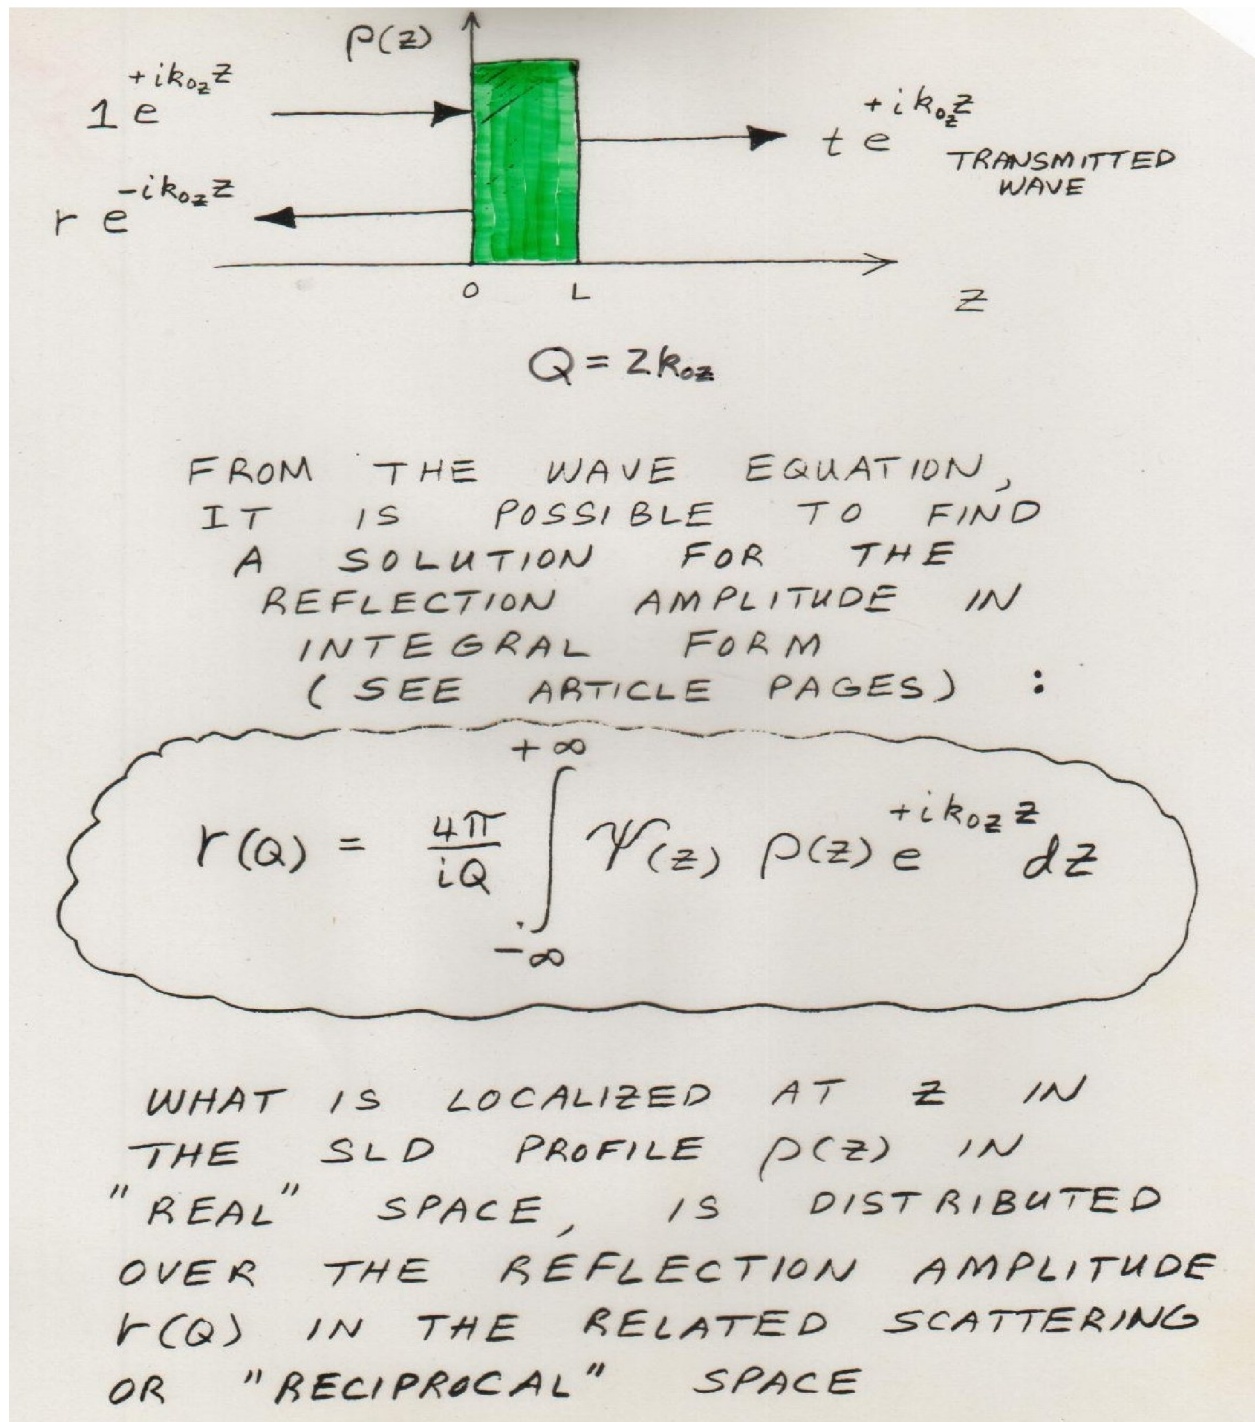 ρ(z)
1 e^{+ik_{0z}z}
t e^{+ik_{0z}z}
TRANSMITTED
WAVE
r e^{-ik_{0z}z}
0 L
z
Q = 2k_{0z}
FROM THE WAVE EQUATION,
IT IS POSSIBLE TO FIND
A SOLUTION FOR THE
REFLECTION AMPLITUDE IN
INTEGRAL FORM
(SEE ARTICLE PAGES) :
r(Q) = \frac{4π}{iQ} ∫_{-∞}^{+∞} Ψ(z) ρ(z) e^{+ik_{0z}z} dz
WHAT IS LOCALIZED AT z IN
THE SLD PROFILE ρ(z) IN
"REAL" SPACE, IS DISTRIBUTED
OVER THE REFLECTION AMPLITUDE
r(Q) IN THE RELATED SCATTERING
OR "RECIPROCAL" SPACE